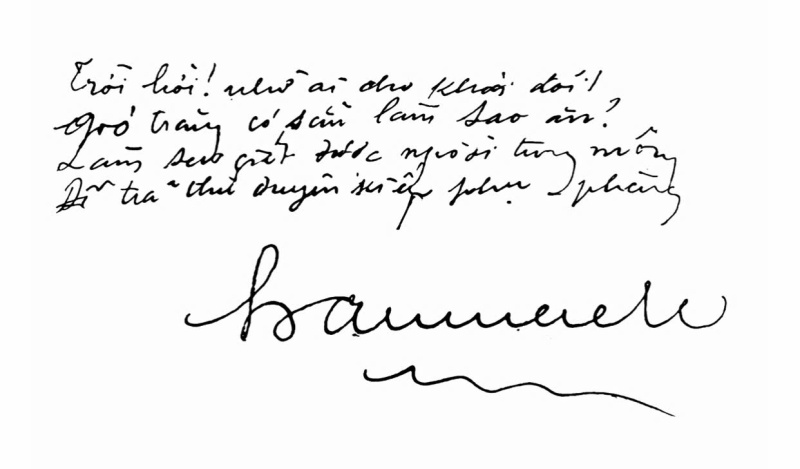 Trời h�ỡi! nhờ ai cho khỏi đói!
Gió trăng có sẵn làm sao ăn?
Làm sao giết được người trong mộng
Để trả thù duyên kiếp phụ phàng